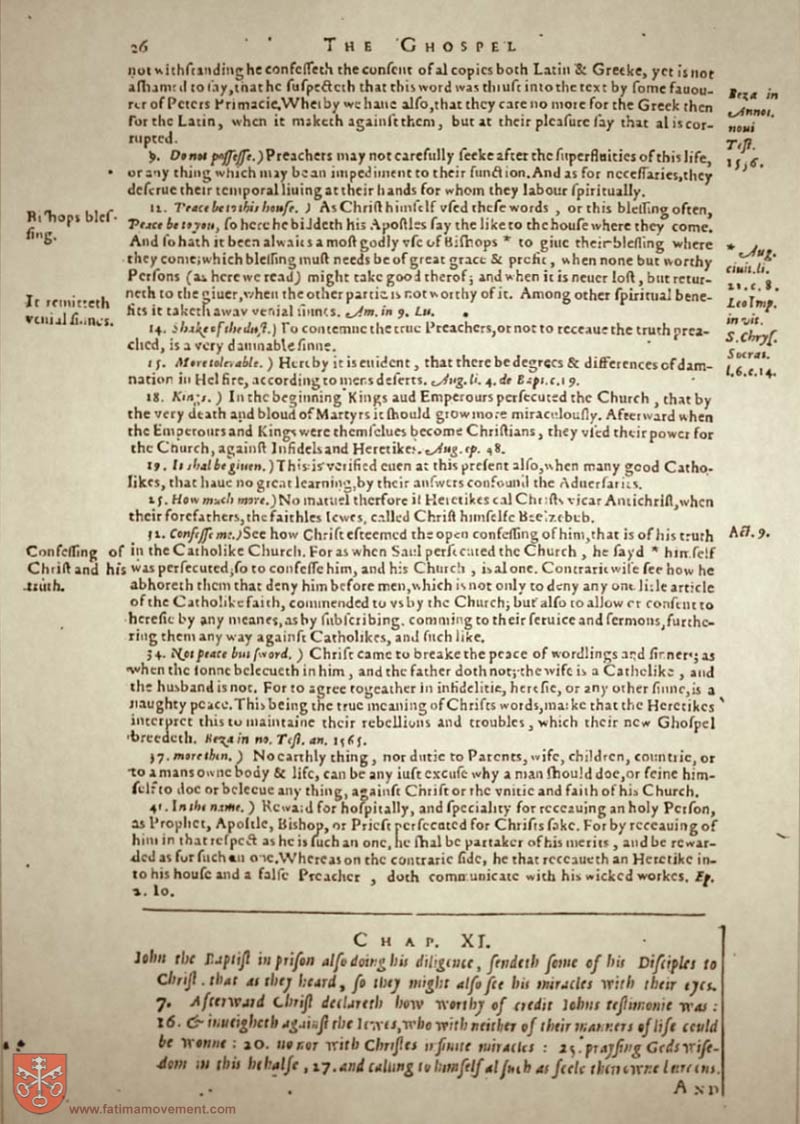 26 THE GHOSPEL
notwithſtanding he confeſſeth the conſent of al copies both Latin & Greeke, yet is not
aſhamed to ſay, that he ſuſpecteth that this word was thruſt into the text by ſome fauou-
rer of Peters Primacie. Wherby we haue alſo, that they care no more for the Greek then
for the Latin, when it maketh againſt them, but at their pleaſure ſay that al is cor-
rupted.
Beza in
Annot.
noui
Teſt.
1556.
9. Do not poſſeſſe.) Preachers may not carefully ſeeke after the ſuperfluities of this life,
or any thing which may be an impediment to their function. And as for neceſſaries, they
deſerue their temporal liuing at their hands for whom they labour ſpiritually.
Biſhops bleſ-
ſing.
12. Peace be to this houſe.) As Chriſt himſelf vſed theſe words, or this bleſſing often,
Peace be to you, ſo here he biddeth his Apoſtles ſay the like to the houſe where they come.
And ſo hath it been alwaies a moſt godly vſe of Biſhops * to giue their bleſſing where
they come; which bleſſing muſt needs be of great grace & profit, when none but worthy
Perſons (as here we read) might take good therof; and when it is neuer loſt, but retur-
neth to the giuer, when the other partie is not worthy of it. Among other ſpiritual bene-
fits it taketh away venial ſinnes. Am. in 9. Lu.
* Aug.
ciuit. li.
22. c. 8.
Leo Imp.
in vit.
S. Chryſ.
Socrat.
l. 6. c. 14.
It remitteth
venial ſinnes.
14. Shake of the duſt.) To contemne the true Preachers, or not to receaue the truth prea-
ched, is a very damnable ſinne.
15. More tolerable.) Hereby it is euident, that there be degrees & differences of dam-
nation in Hel fire, according to mens deſerts. Aug. li. 4. de Bapt. c. 19.
18. Kings.) In the beginning Kings aud Emperours perſecuted the Church, that by
the very death and bloud of Martyrs it ſhould grow more miraculouſly. Afterward when
the Emperours and Kings were themſelues become Chriſtians, they vſed their power for
the Church, againſt Infidels and Heretikes. Aug. ep. 48.
19. It ſhal be giuen.) This is verified euen at this preſent alſo, when many good Catho-
likes, that haue no great learning, by their anſwers confound the Aduerſaries.
25. How much more.) No maruel therfore if Heretikes cal Chriſts vicar Antichriſt, when
their forefathers, the faithles Iewes, called Chriſt himſelfe Beelzebub.
Confeſſing of
Chriſt and his
truth.
32. Confeſſe me.) See how Chriſt eſteemed the open confeſſing of him, that is of his truth
in the Catholike Church. For as when Saul perſecuted the Church, he ſayd * himſelf
was perſecuted, ſo to confeſſe him, and his Church, is al one. Contrariwiſe ſee how he
abhoreth them that deny him before men, which is not only to deny any one litle article
of the Catholike faith, commended to vs by the Church; but alſo to allow or conſent to
hereſie by any meanes, as by ſubſcribing, comming to their ſeruice and ſermons, furthe-
ring them any way againſt Catholikes, and ſuch like.
Act. 9.
34. Not peace but ſword.) Chriſt came to breake the peace of wordlings and ſinners; as
when the ſonne beleeueth in him, and the father doth not; the wife is a Catholike, and
the husband is not. For to agree togeather in infidelitie, hereſie, or any other ſinne, is a
naughty peace. This being the true meaning of Chriſts words, marke that the Heretikes
interpret this to maintaine their rebellions and troubles, which their new Ghoſpel
breedeth. Beza in no. Teſt. an. 1565.
37. more then.) No earthly thing, nor dutie to Parents, wife, children, countrie, or
to a mans owne body & life, can be any iuſt excuſe why a man ſhould doe, or feine him-
ſelf to doe or beleeue any thing, againſt Chriſt or the vnitie and faith of his Church.
41. In the name.) Reward for hoſpitally, and ſpecially for receauing an holy Perſon,
as Prophet, Apoſtle, Biſhop, or Prieſt perſecuted for Chriſts ſake. For by receauing of
him in that reſpect as he is ſuch an one, he ſhal be partaker of his merits, and be rewar-
ded as for ſuch an one. Whereas on the contrarie ſide, he that receaueth an Heretike in-
to his houſe and a falſe Preacher, doth communicate with his wicked workes. Ep.
2. Io.
CHAP. XI.
John the Baptiſt in priſon alſo doing his diligence, ſendeth ſome of his Diſciples to
Chriſt. that as they heard, ſo they might alſo ſee his miracles with their eyes.
7. Afterward Chriſt declareth how worthy of credit Johns teſtimonie was:
16. & inueigheth againſt the Iewes, who with neither of their manners of life could
be wonne: 20. no nor with Chriſtes infinite miracles: 25. prayſing Gods wiſe-
dom in this behalfe, 27. and calling to himſelf al ſuch as feele their owne burdens.
AND
www.fatimamovement.com